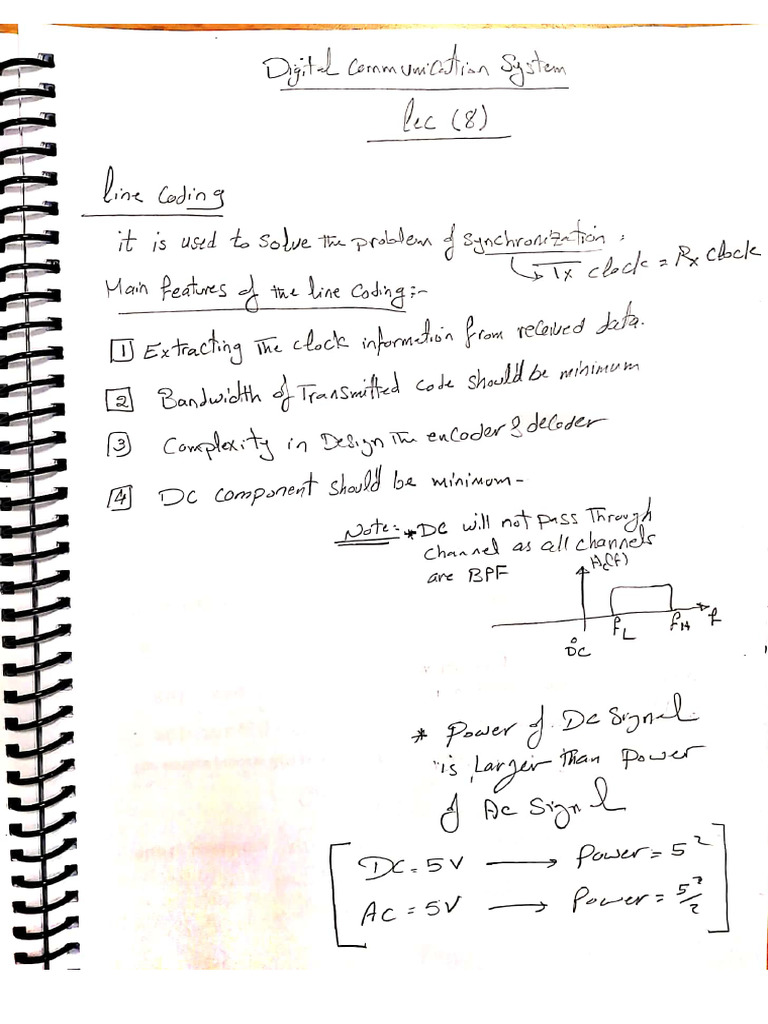 Digital Communication System
Lec (8)
Line Coding
it is used to solve the problem of synchronization.
Tx clock = Rx clock
Main features of the line Coding:-
1 Extracting The clock information from received data.
2 Bandwidth of Transmitted code should be minimum
3 Complexity in Design The encoder & decoder
4 DC component should be minimum-
Note:- * DC will not pass Through
channel as all channels
are BPF
Hc(f)
fL fH f
DC
* Power of DC Signal
is Larger Than Power
of AC Signal
DC = 5V → Power = 5²
AC = 5V → Power = 5²/2